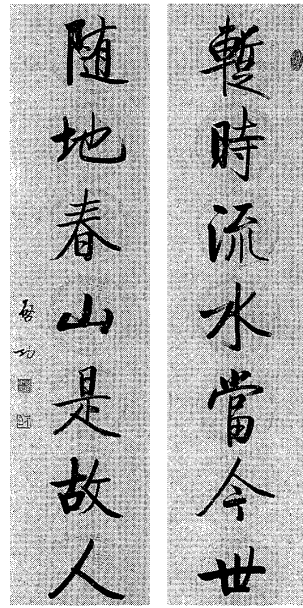 暫時流水當今世
随地春山是故人
啓功